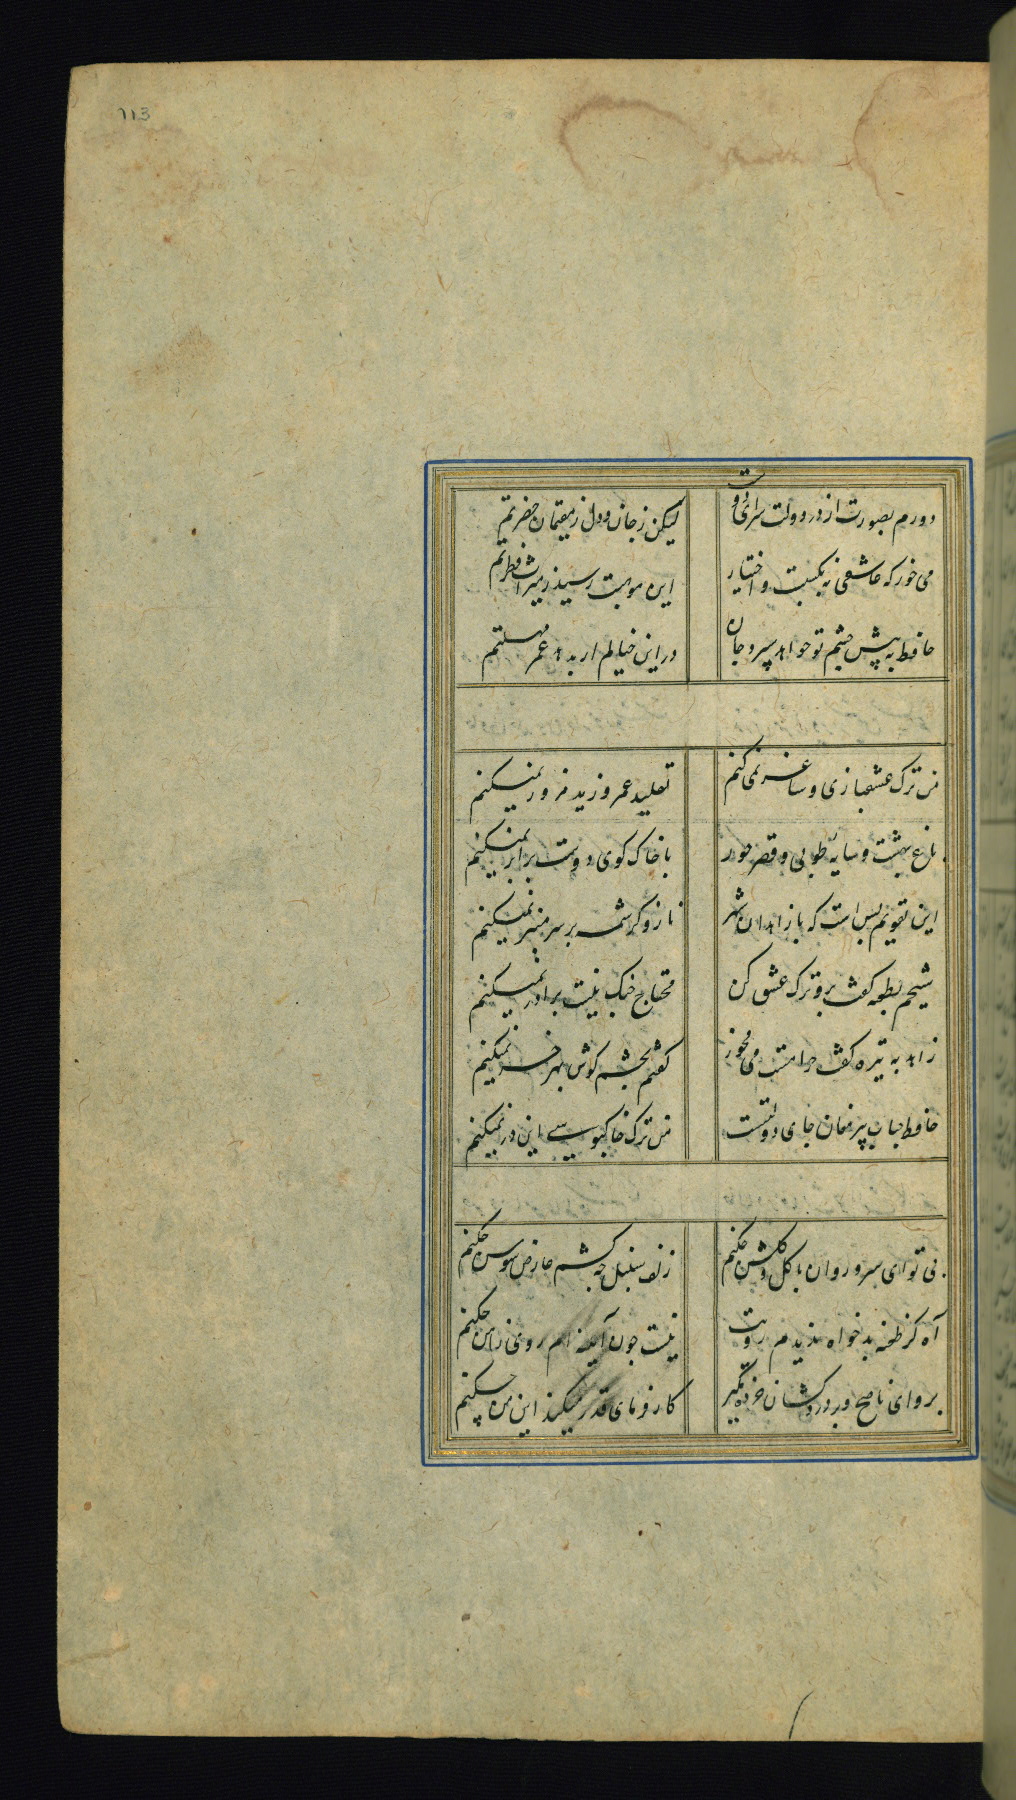 113
دورم بصورت از در دولت سرای دوست
لیکن ز جان و دل ز مقیمان حضرتم
می خور که عاشقی نه بکسبت و اختیار
این موهبت رسید ز میراث فطرتم
حافظ به پیش چشم تو خواهد سپرد جان
در این خیالم ار بدهد عمر مهلتم
من ترک عشقبازی و ساغر نمی کنم
عمر نمیکنم
باغ بهشت و سایه طوبی و قصر حور
با خاک کوی دوست برابر نمیکنم
این تقویم بس است که با زاهدان شهر
ناز و کرشمه بر سر منبر نمیکنم
شیخم بطعنه گفت برو ترک عشق کن
محتاج جنگ نیست برادر نمیکنم
زاهد به تیره گفت حرامست می مخور
گفتم بچشم گوش بهر خر نمیکنم
حافظ جناب پیر مغان جای دولتست
من ترک خاکبوسی این در نمیکنم
بی تو ای سرو روان با گل و گلشن چکنم
زلف سنبل چه کشم عارض سوسن چکنم
آه کز طعنه بدخواه ندیدم رویت
نیست چون آینه ام روی ز آهن چکنم
برو ای ناصح و بر دردکشان خرده مگیر
کارفرمای قدر میکند این من چکنم